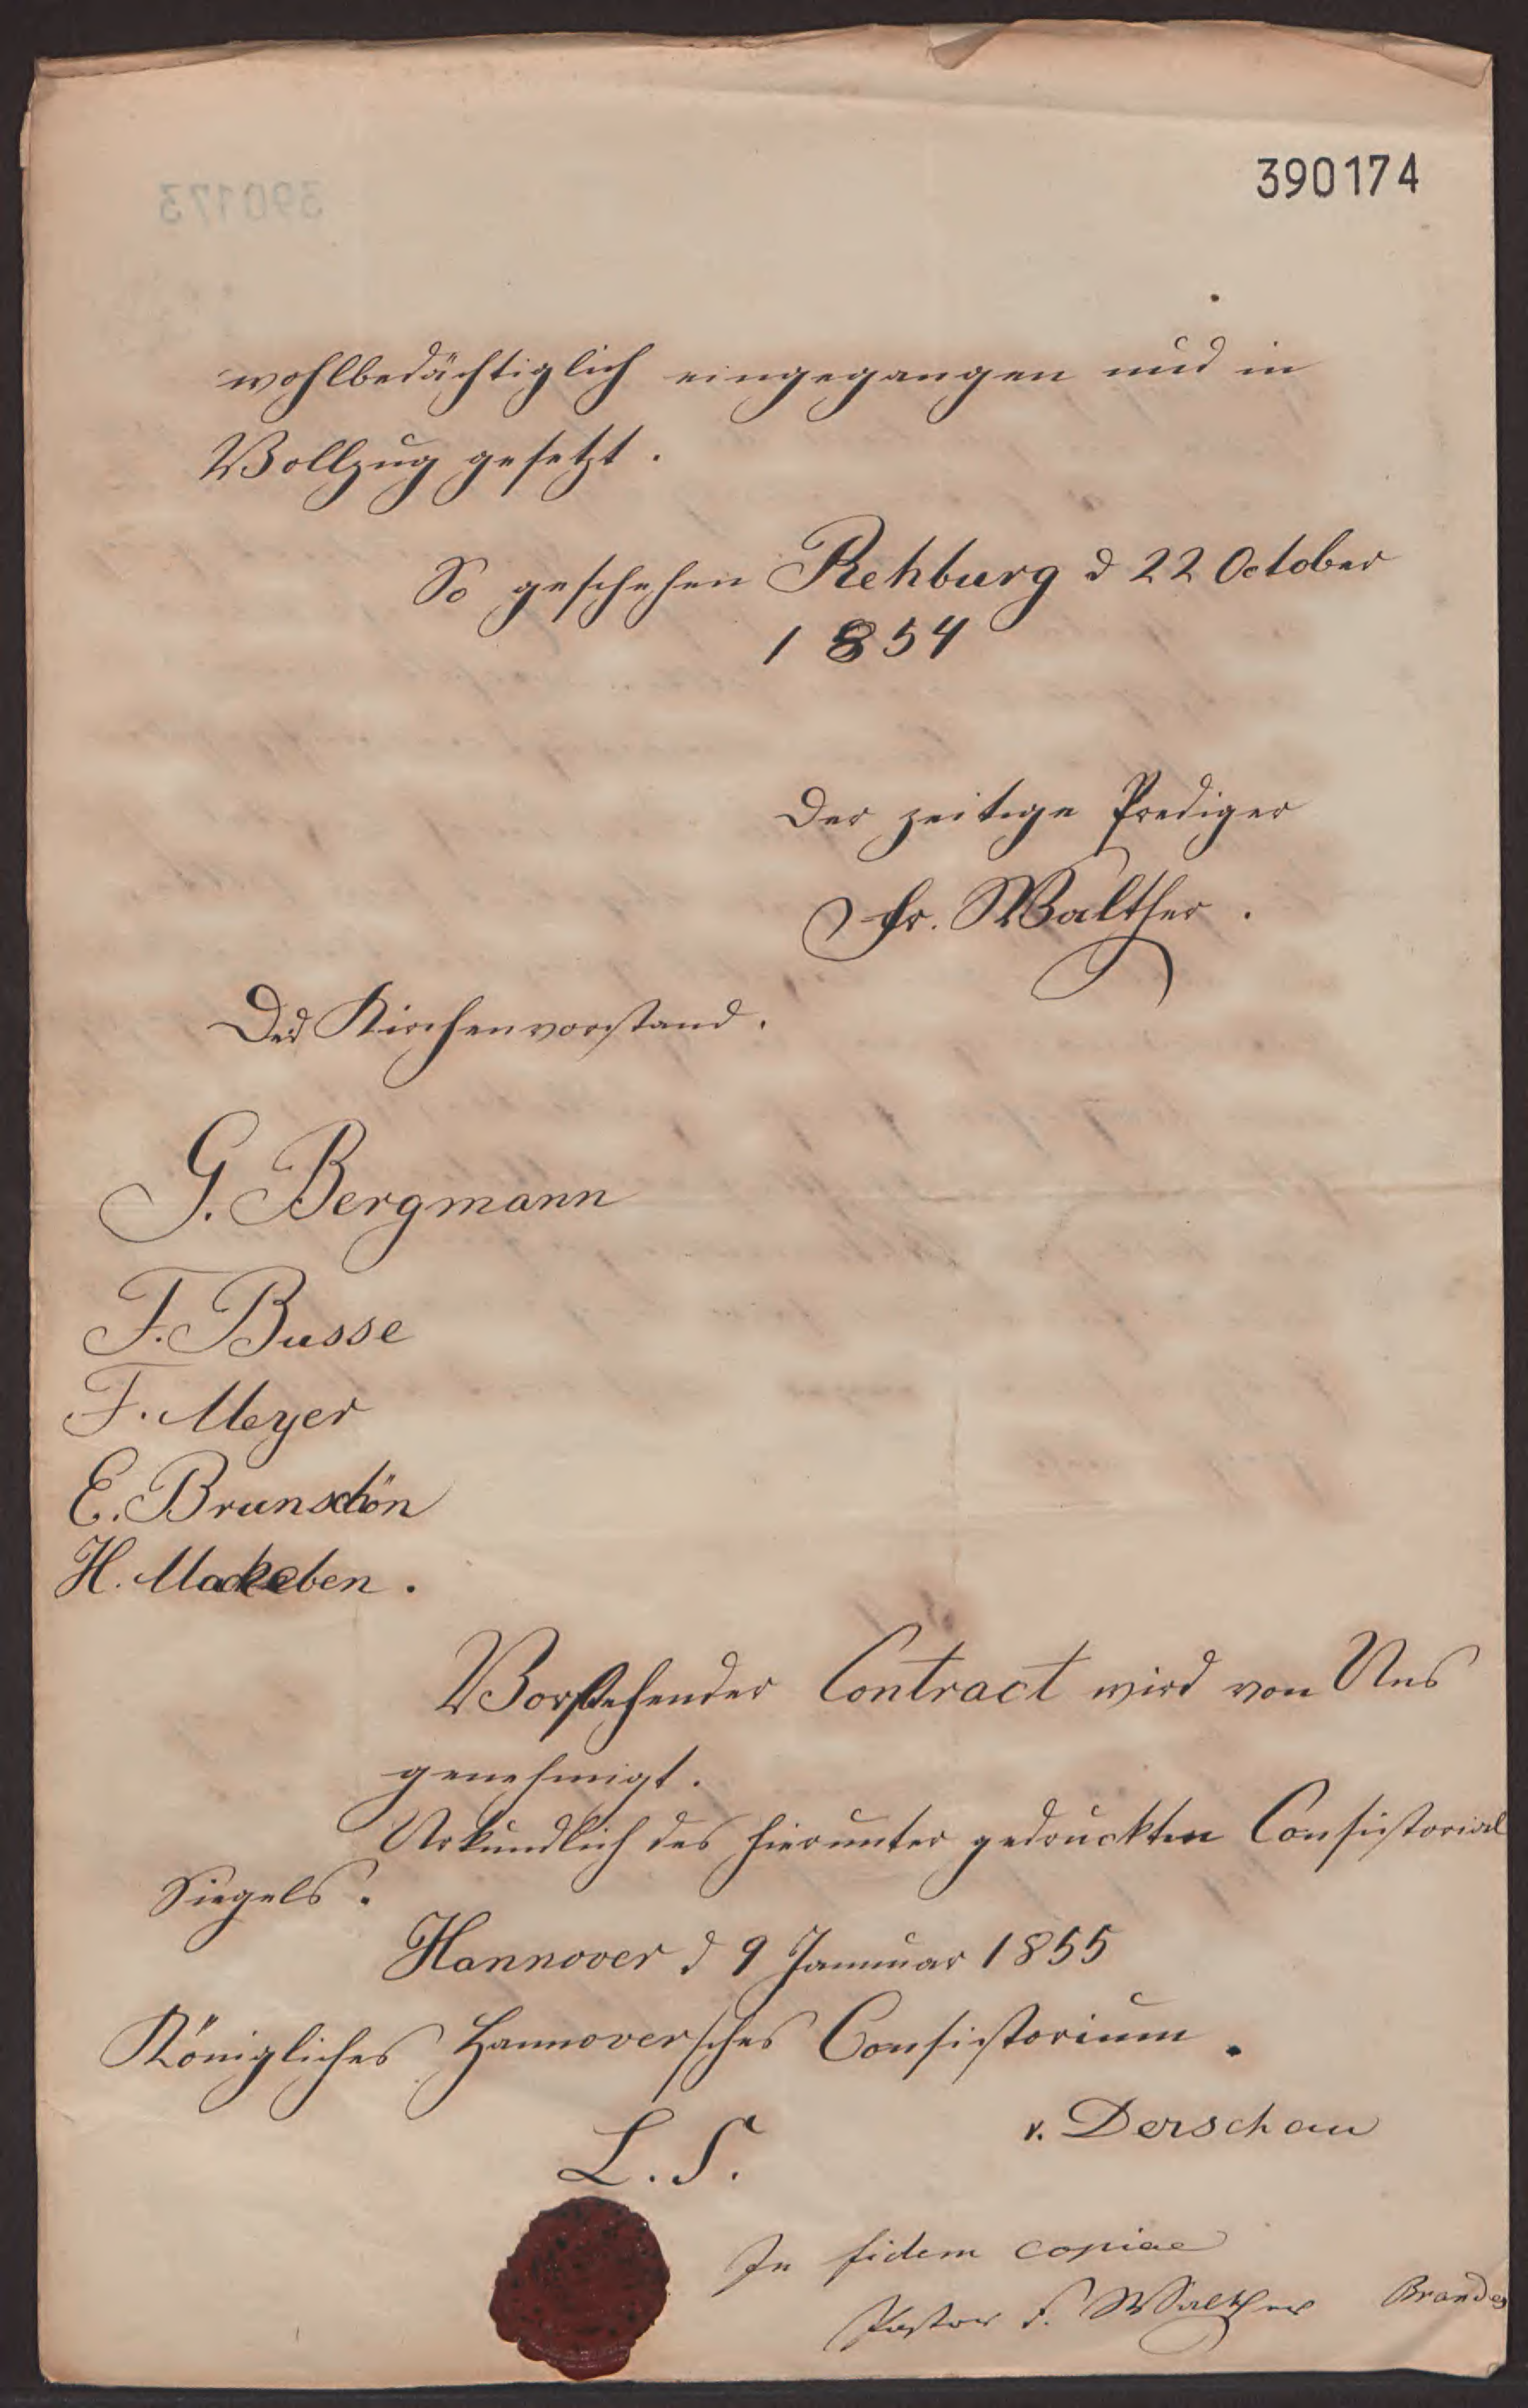 390174
wohlbedächtiglich eingegangen und in
Vollzug gesetzt.
So geschehen Rehburg d 22 October
1854
Der zeitige Prediger
Fr. Walther.
Der Kirchenvorstand.
G. Bergmann
F. Busse
F. Meyer
E. Brunschön
H. Mackeben.
Vorstehender Contract wird von Uns
genehmigt.
Urkundlich des hierunter gedruckten Consistorial
Siegels.
Hannover d 9 Januar 1855
Königliches Hannoversches Consistorium.
L. S.
v. Derschau
In fidem copiae
Pastor F. Walther Brandes